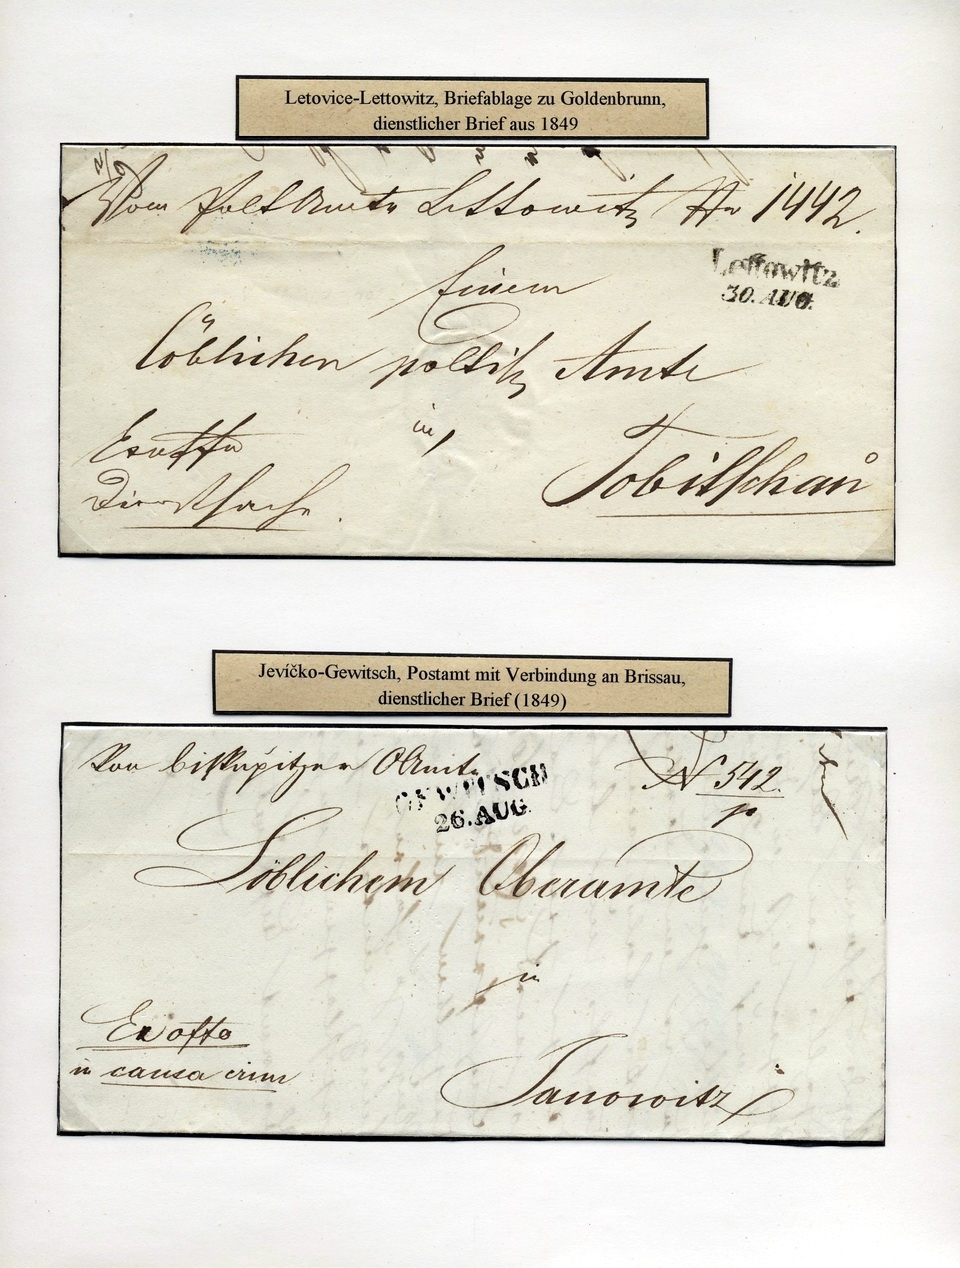 Letovice-Lettowitz, Briefablage zu Goldenbrunn,
dienstlicher Brief aus 1849
Vom Lettowitz No 1442.
Lettowitz
30. AUG.
Einem
löblichen Amte
in
Exoffo
Dienstsache.
Tobitschau
Jevíčko-Gewitsch, Postamt mit Verbindung an Brissau,
dienstlicher Brief (1849)
Von biskupitzer OAmte
N 542.
GEWITSCH
26. AUG.
Löblichem Oberamte
in
Ex offo
in causa crim
Janowitz